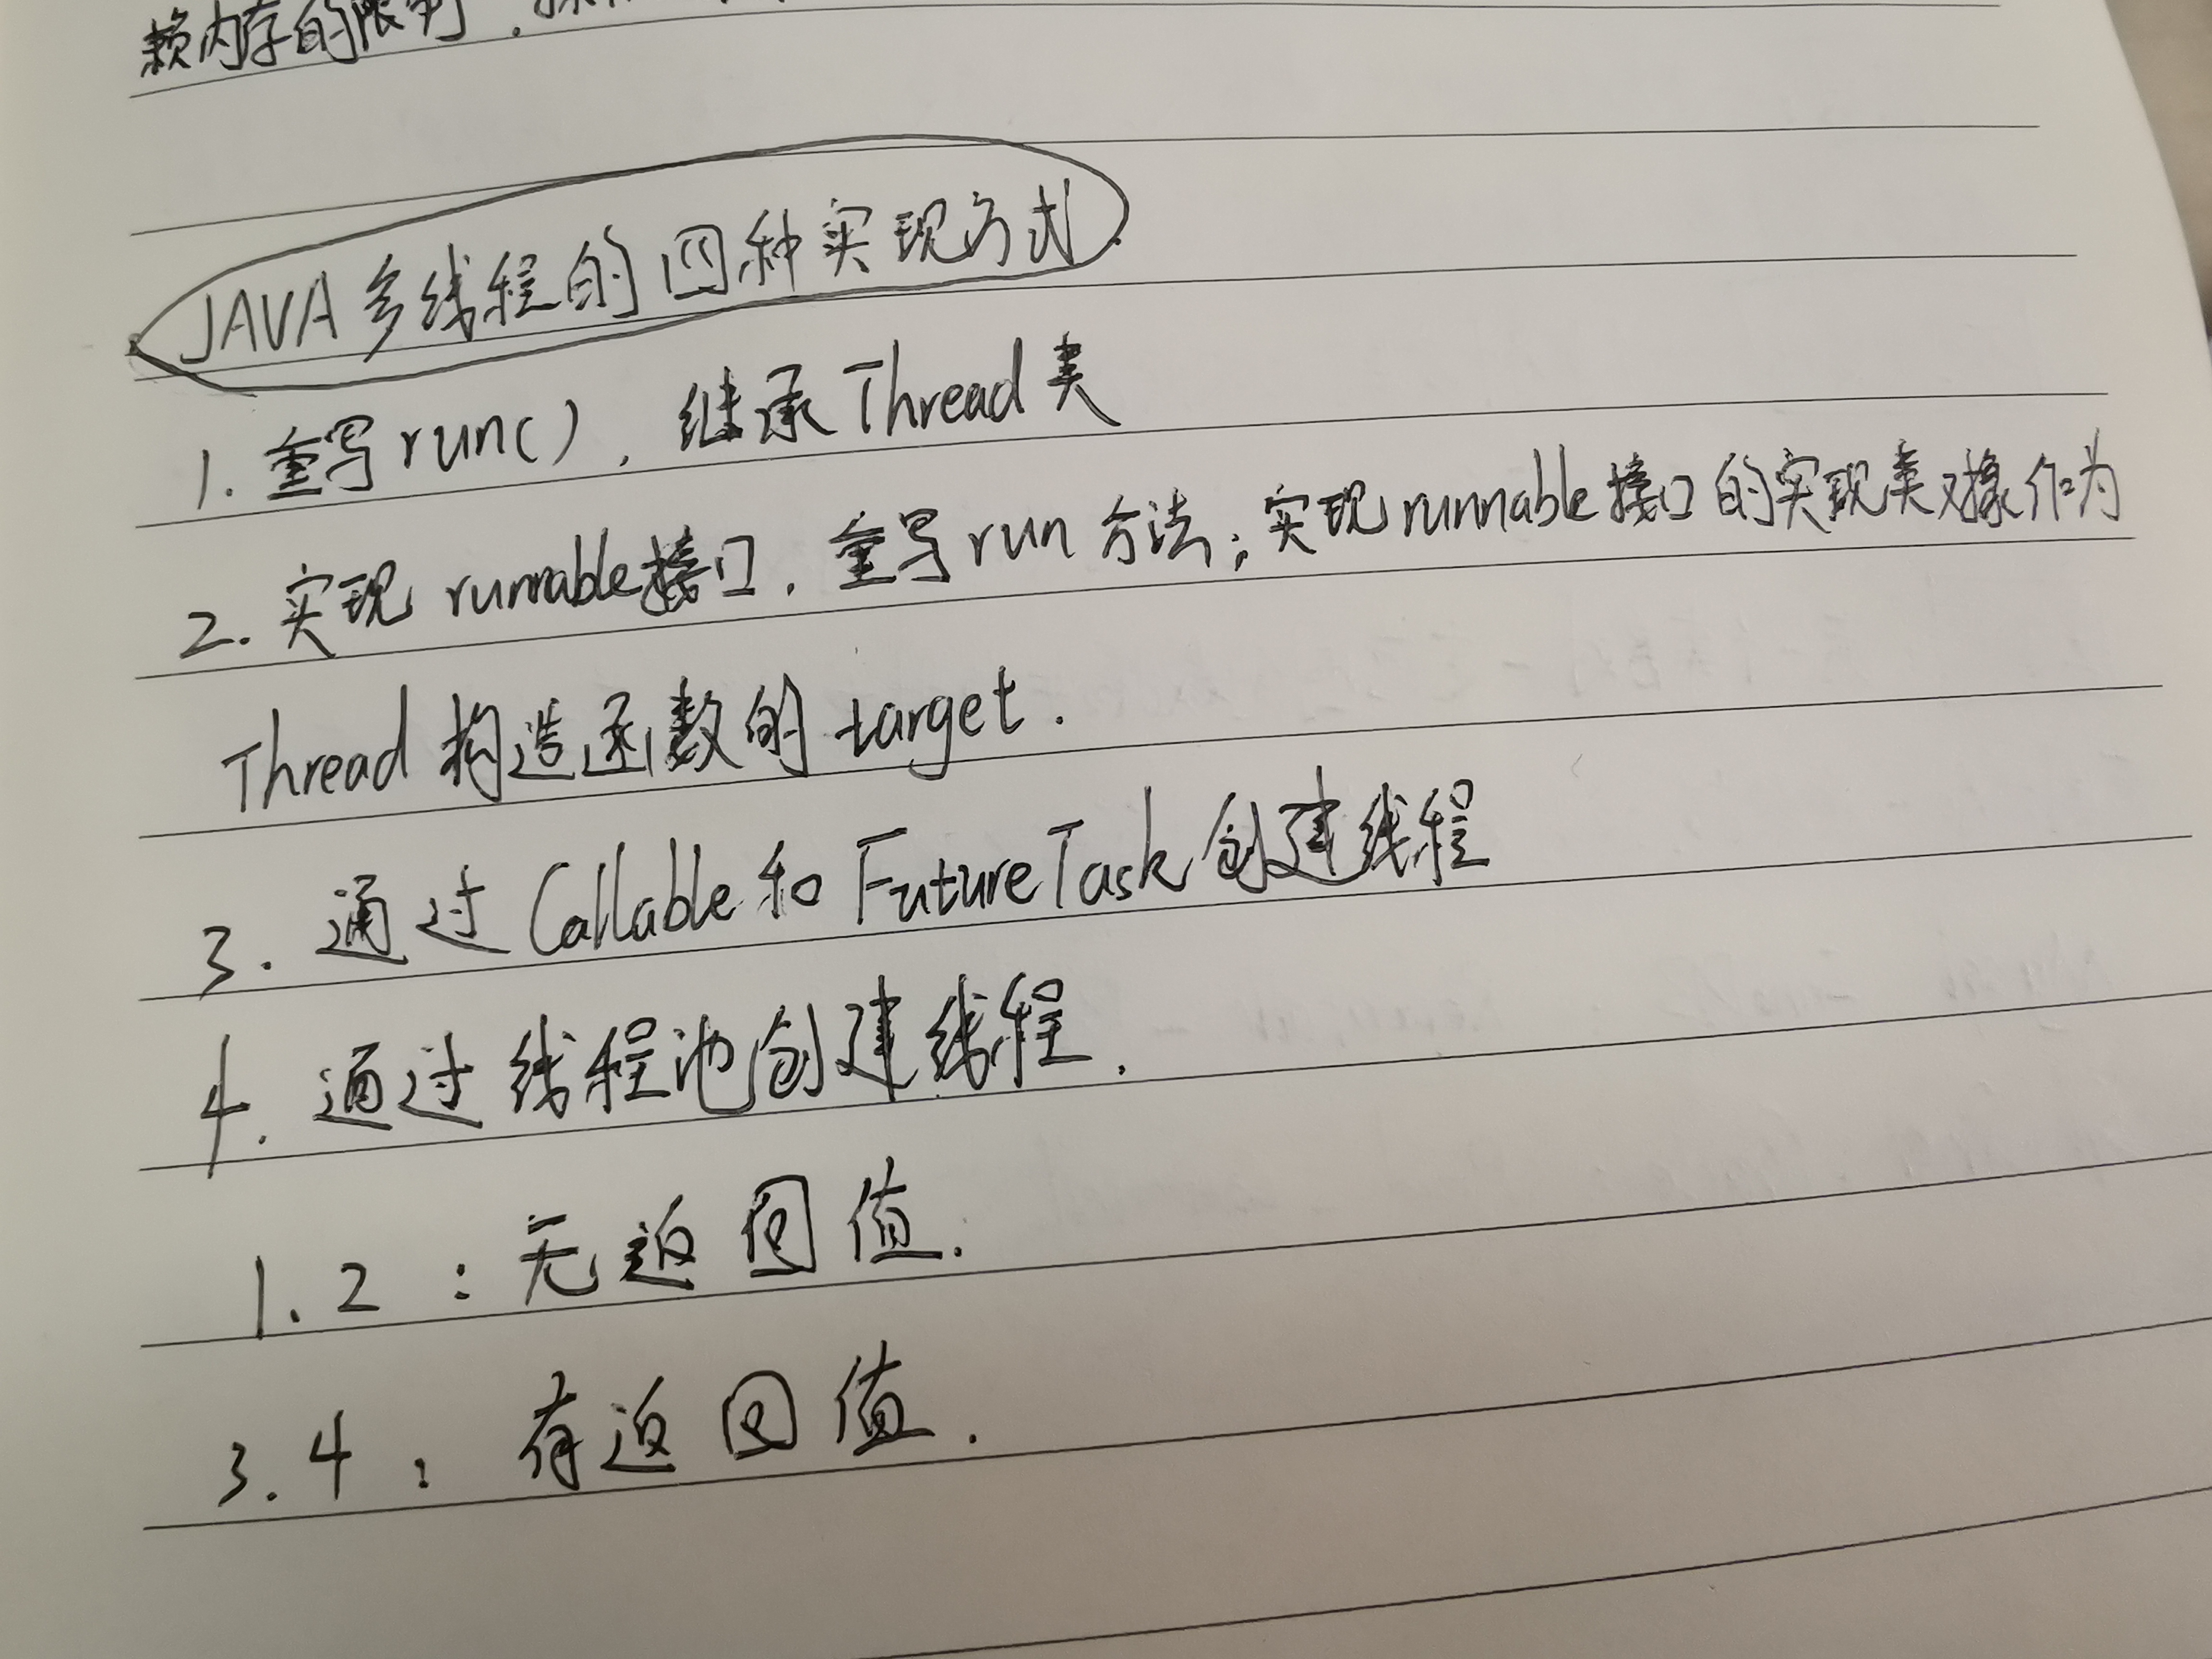 赖内存的限制.
JAVA多线程的四种实现方式
1. 重写run(), 继承Thread类
2. 实现runnable接口, 重写run方法; 实现runnable接口的实现类对象作为
Thread构造函数的target.
3. 通过Callable和FutureTask创建线程
4. 通过线程池创建线程.
1.2: 无返回值.
3.4: 有返回值.